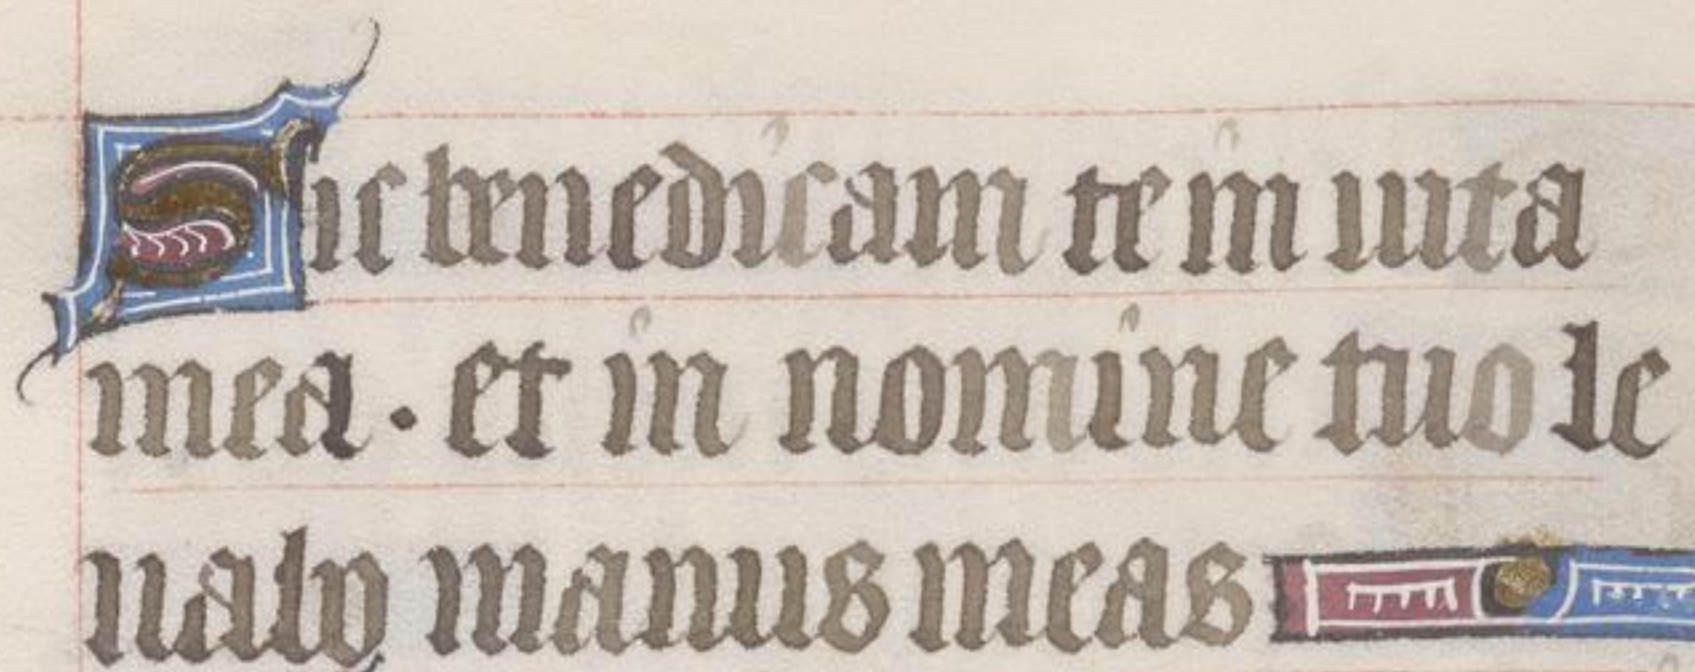 Sic benedicam te in uita
mea · et in nomine tuo le
uabo manus meas